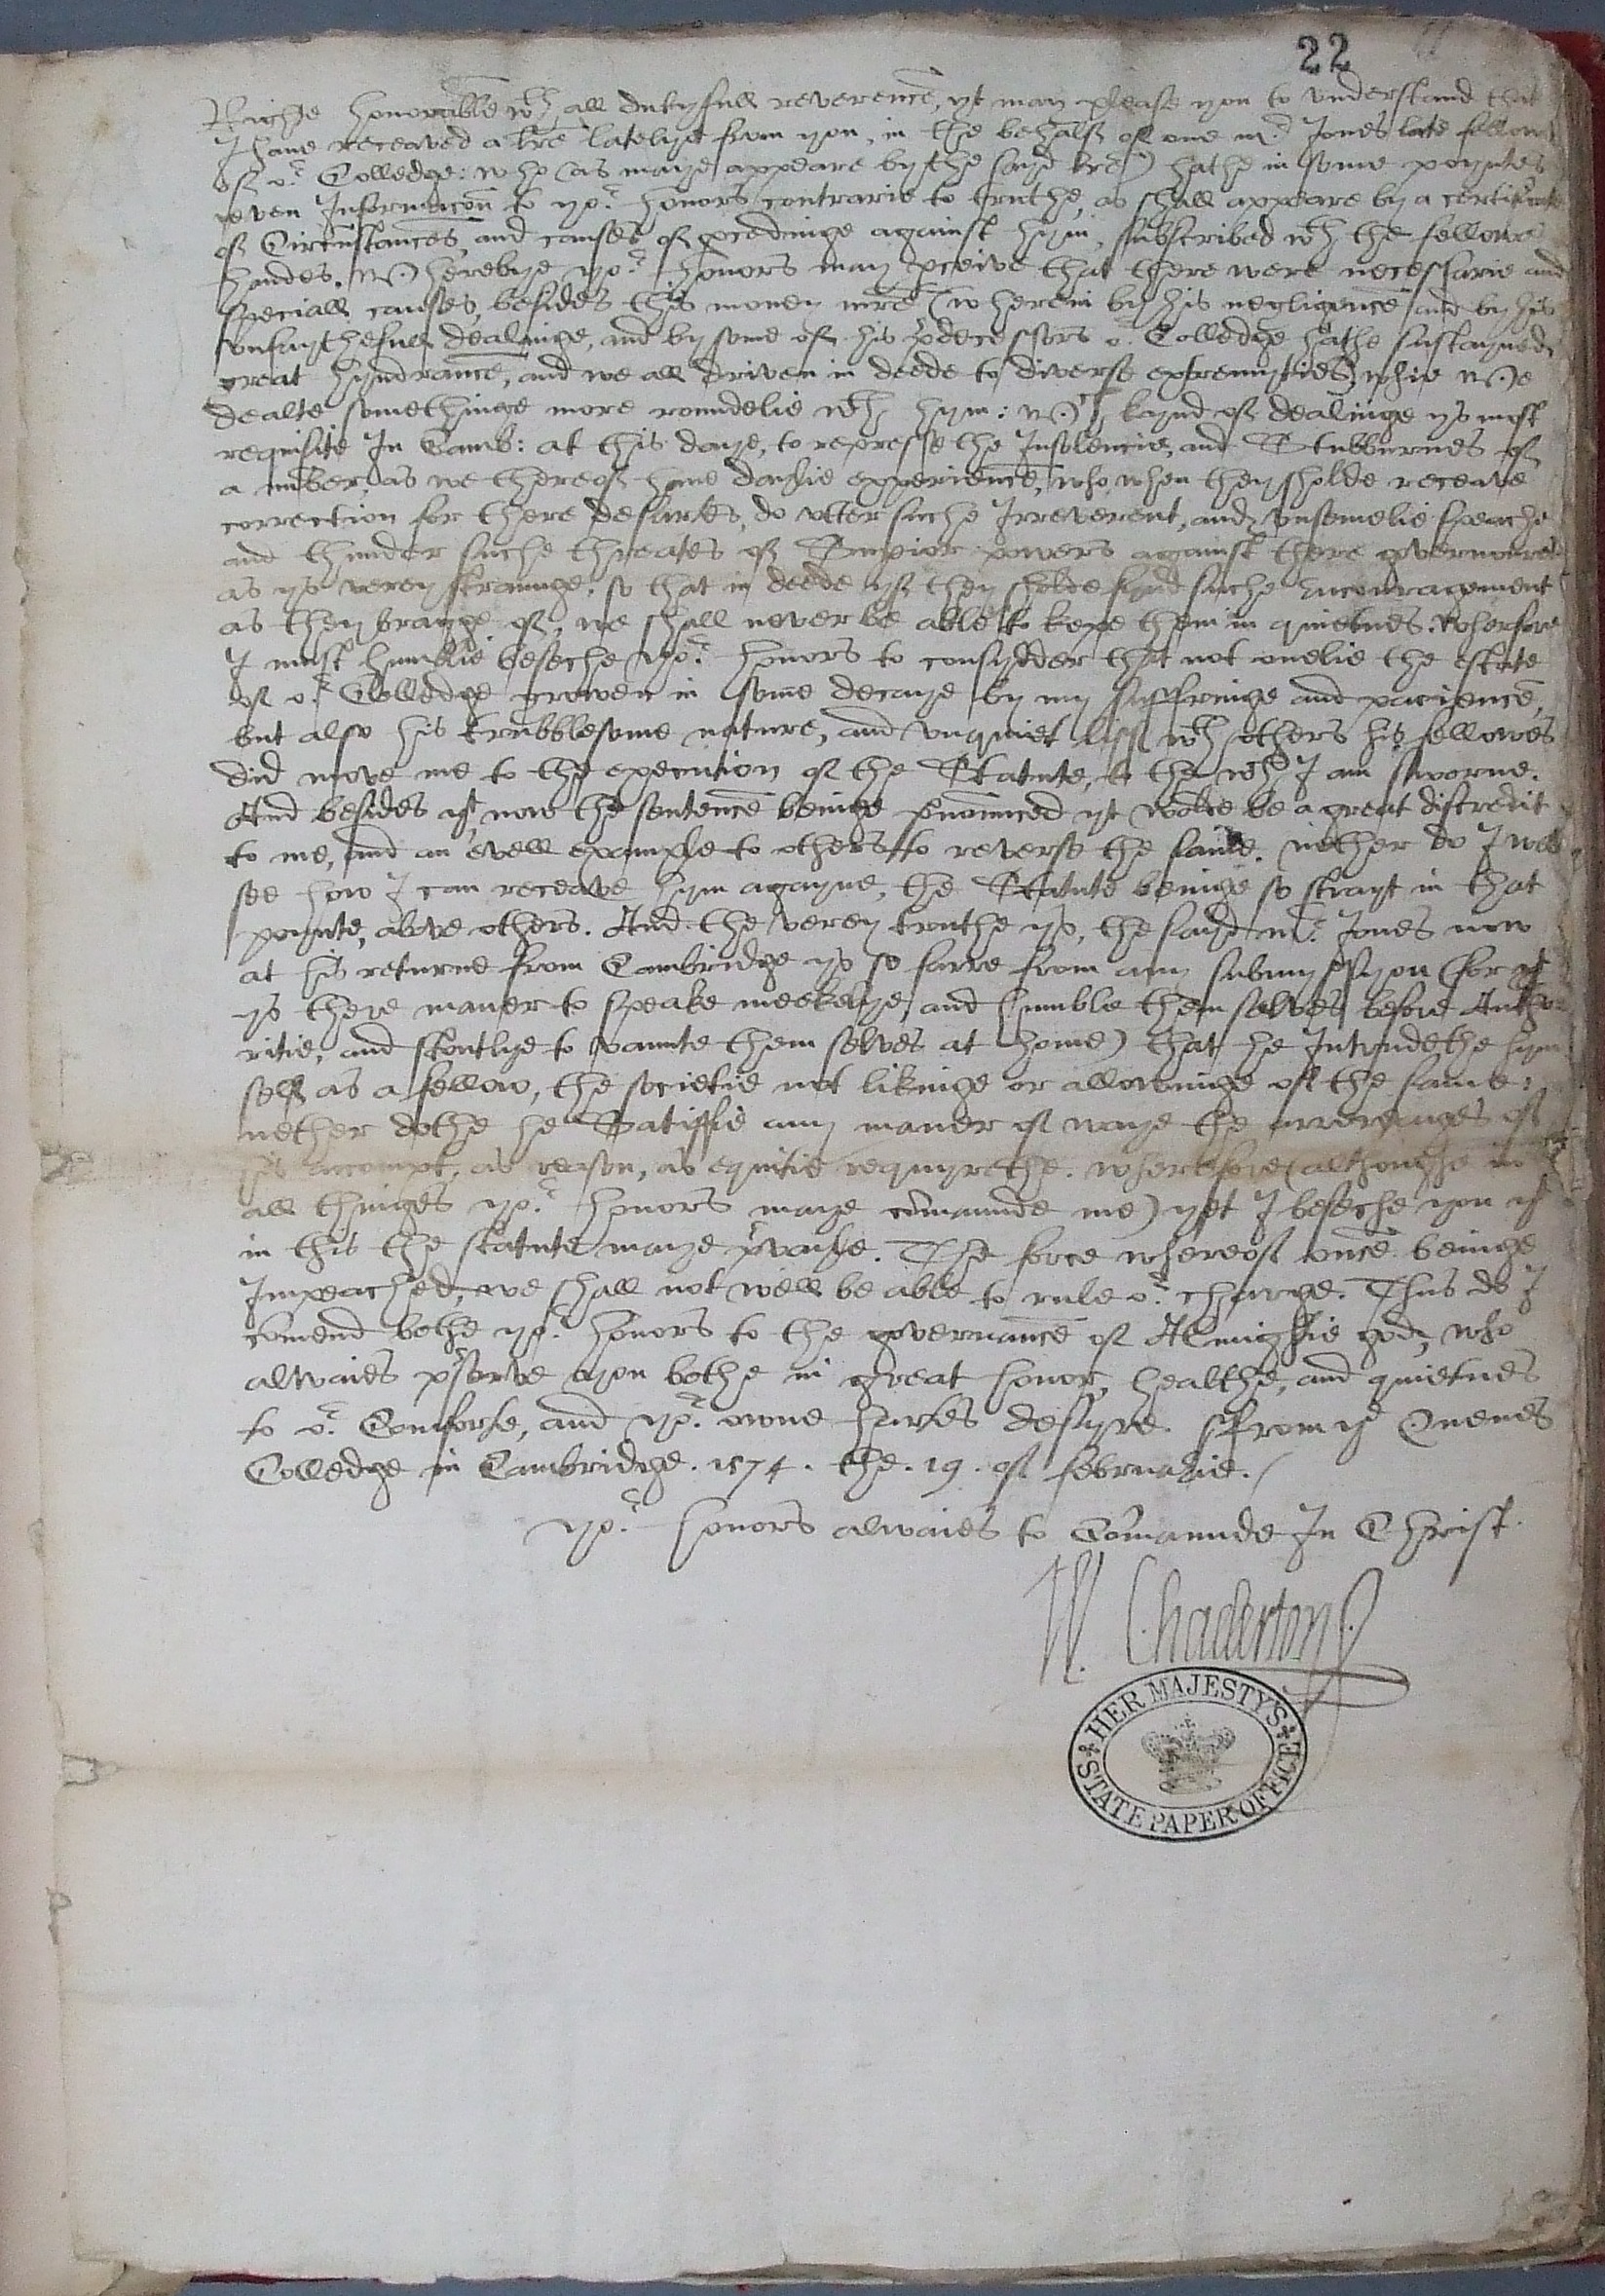 22
Righte honorable wth all dutyfull reverence, yt may please you to understand that
I have receaved a lre latelye from you, in the behalf of one mr Jones late fellow
of or Colledge: who (as maye appeare by the sayd lre) hathe in some poyntes
geven Informacon to yor honors contrarie to truthe, as shall appeare by a certificate
of Circumstances, and causes of pcedinge against hym, subscribed wth the fellowes
handes. Wherebye yor honors may pceive that there were necessarie and
speciall causes, besides this money mre (wherein by his negligence and by his
unfaythefull dealinge, and by some of his pdecessors or Colledge hathe sustayned
great hyndrance, and we all driven in deede to diverse extremyties) whie we
dealte somethinge more roundelie wth hym: wch kynd of dealinge ys most
requisite In Camb: at this daye, to represse the Insolencie, and Stubburnes of
a nuber, as we thereof have daylie experience, who when they sholde receave
correction for there desartes, do utter suche Irreverent, and unsemelie speache
and thunder suche threates of Supior powers against there governours
as ys verey straunge, so that in deede yf they sholde fynd suche Incouragement
as they bragge of, we shall never be able to kepe them in quietnes. Wherfore
I must humblie beseche yor honors to consydder that not onelie the estate
of or Colledge growen in some decaye by my suffringe and pacience,
but also his trubblesome nature, and unquiet liff wth others his fellowes
did move me to the execution of the Statute, to the wch I am sworne.
And besides yt, now the sentence beinge pnounced yt wolde be a great discredit
to me, and an evell example to others to reverse the same. nether do I well
see how I can receave hym agayne, the Statute beinge so strayt in that
poynte, above others. And the verey truthe ys, the sayd mr Jones now
at his returne from Cambridge ys so farre from any submyssyon (for yt
ys there maner to speake meekelye, and humble them selves before Autho
ritie, and stoutlye to vaunte them selves at home) that he Intrudethe hym
self as a fellow, the societie not likinge or allowinge of the same:
nether dothe he Satisfie any maner of waye the arrerages of
his accompt, as reason, as equitie requyrethe. Wherefore (althoughe in
all thinges yor honors maye comaunde me) yet I beseche you yt
in this the statute maye pvayle. The force whereof once beinge
Impeached, we shall not well be able to rule or charge. Thus do I
comend bothe yor honors to the governance of Almightie god, who
alwaies pserve you bothe in great honor, healthe, and quietnes
to or Comforte, and yor owne hartes desyre. ffrom ye Quenes
Colledge in Cambridge. 1574. the. 19. of februarie.
yor honors alwaies to Comaunde In Christ.
W. Chaderton
HER MAJESTY'S STATE PAPER OFFICE